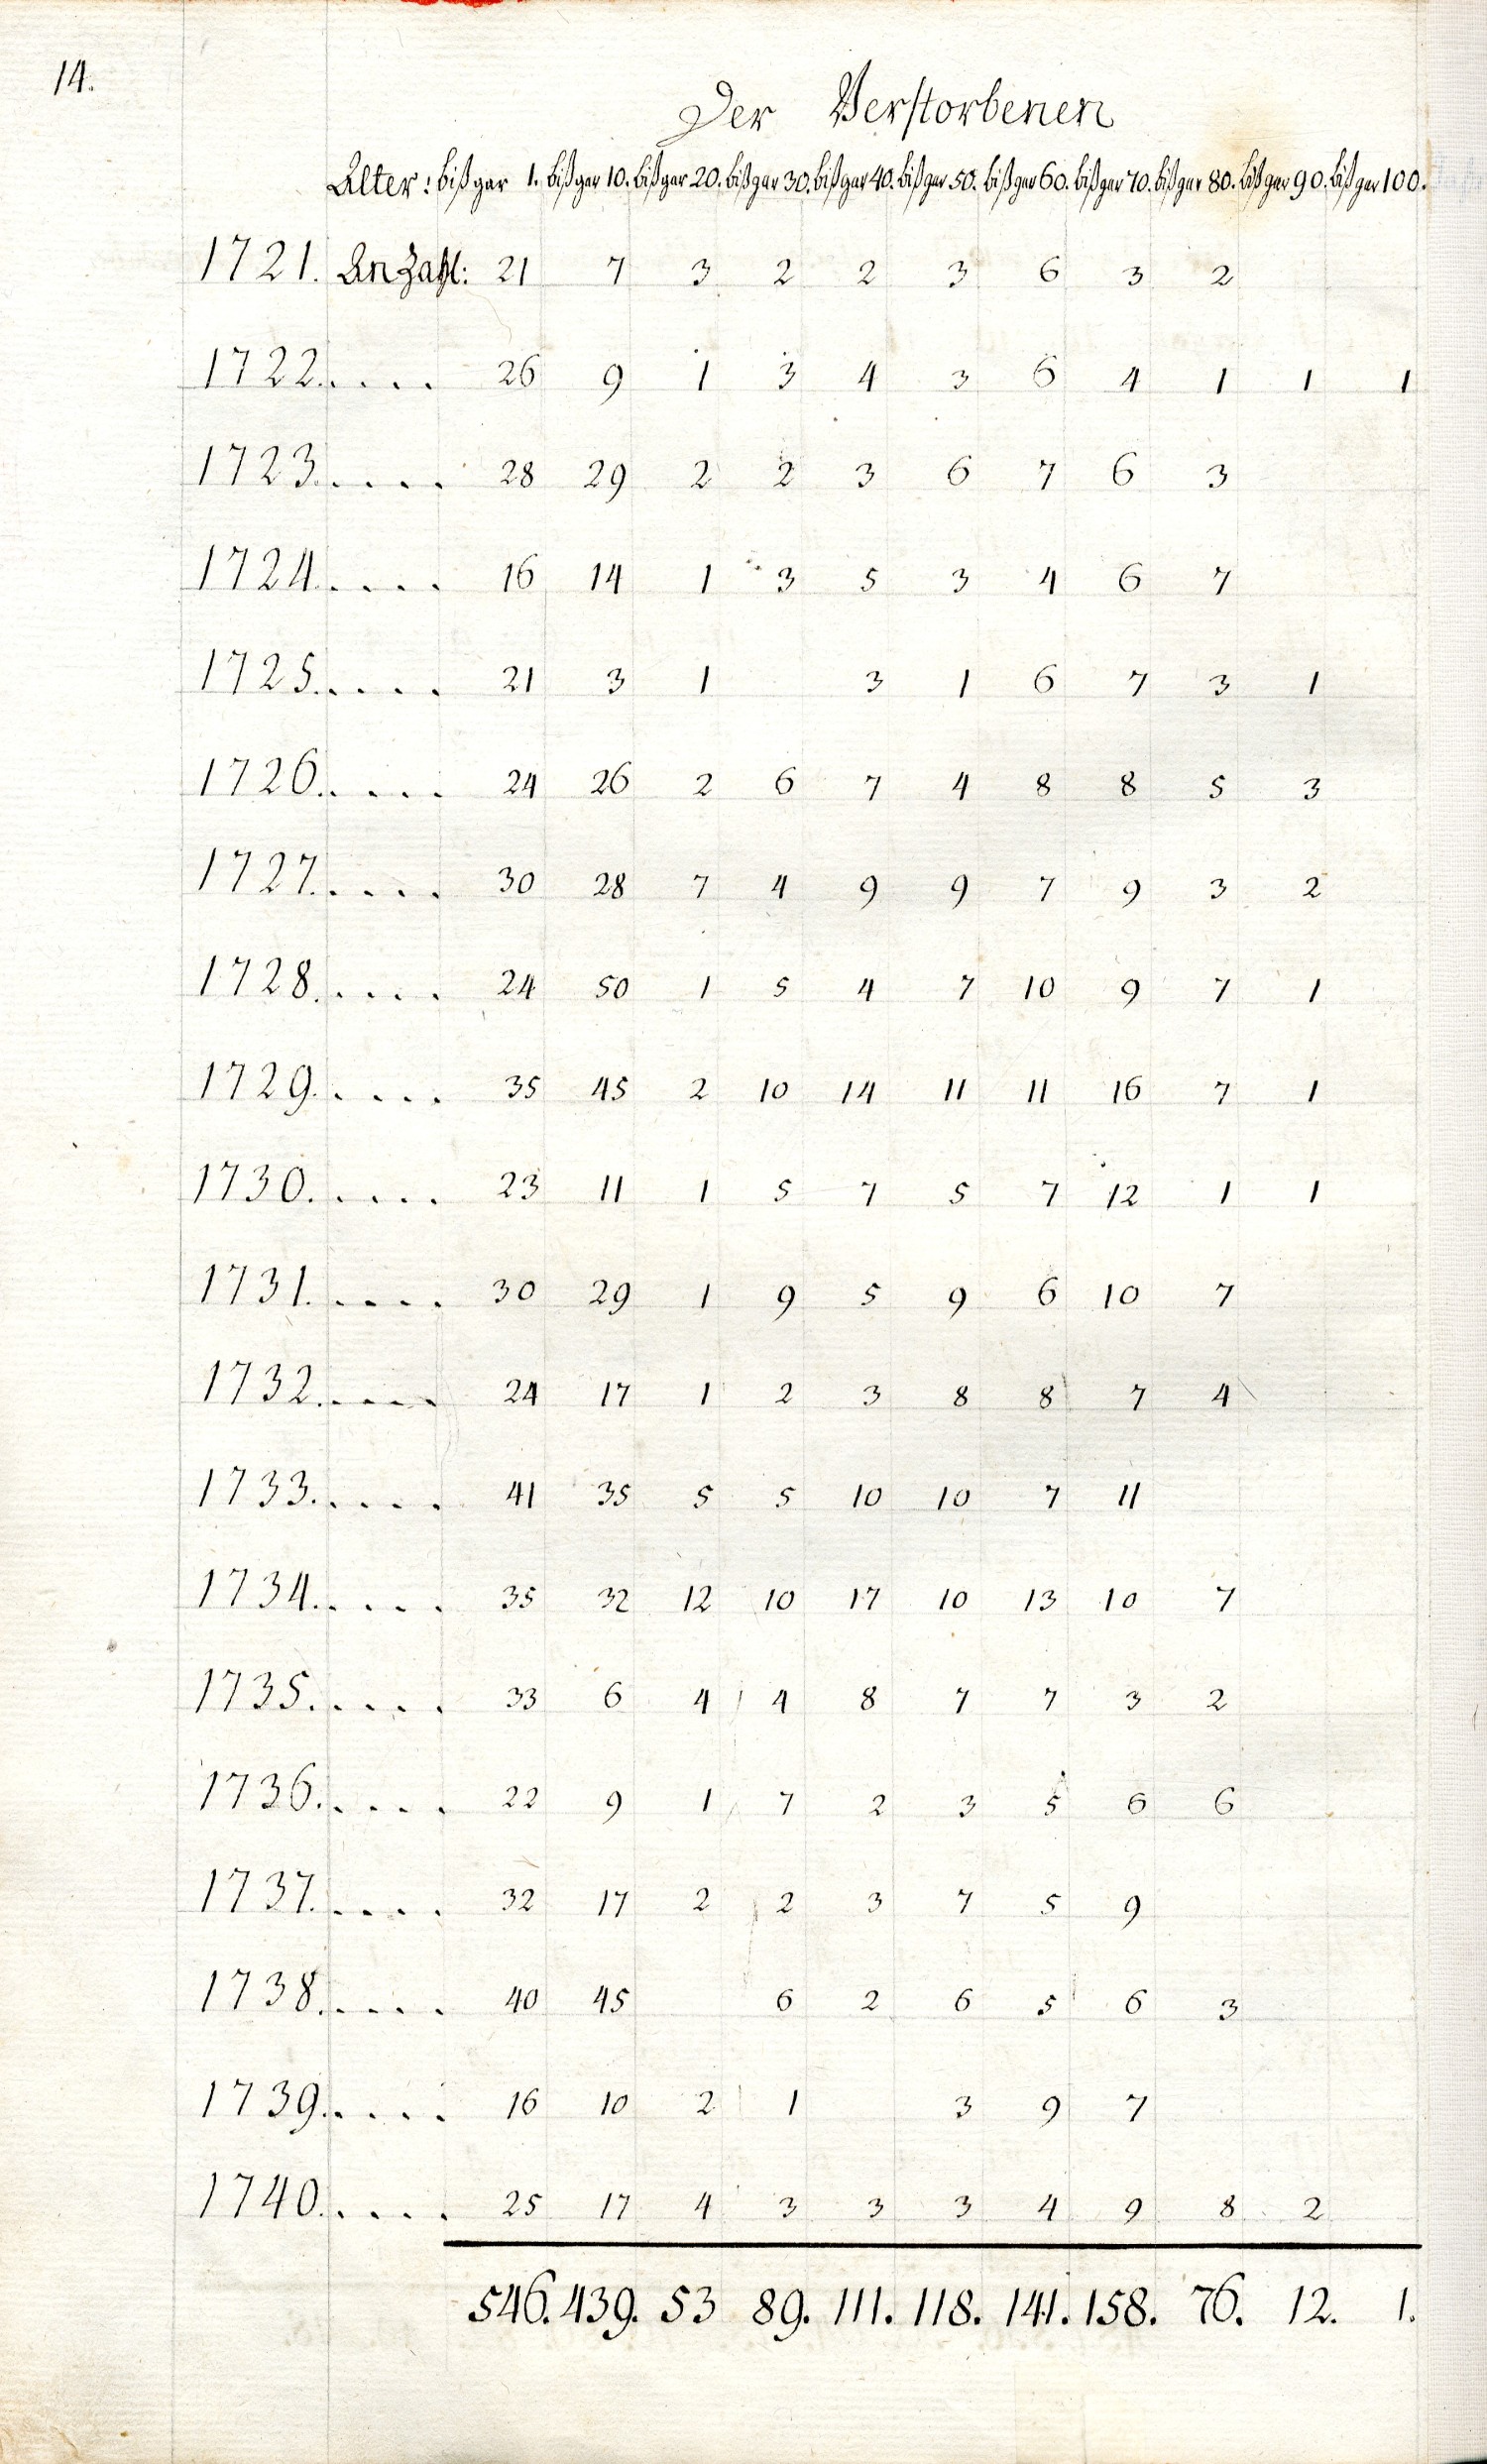 14.
Der Verstorbenen
Alter: biß gar 1. biß gar 10. biß gar 20. biß gar 30. biß gar 40. biß gar 50. biß gar 60. biß gar 70. biß gar 80. biß gar 90. biß gar 100.
1721. Anzahl: 21 7 3 2 2 3 6 3 2
1722. . . . . 26 9 1 3 4 3 6 4 1 1 1
1723. . . . . 28 29 2 2 3 6 7 6 3
1724. . . . . 16 14 1 3 5 3 4 6 7
1725. . . . . 21 3 1 3 1 6 7 3 1
1726. . . . . 24 26 2 6 7 4 8 8 5 3
1727. . . . . 30 28 7 4 9 9 7 9 3 2
1728. . . . . 24 50 1 5 4 7 10 9 7 1
1729. . . . . 35 45 2 10 14 11 11 16 7 1
1730. . . . . 23 11 1 5 7 5 7 12 1 1
1731. . . . . 30 29 1 9 5 9 6 10 7
1732. . . . . 24 17 1 2 3 8 8 7 4
1733. . . . . 41 35 5 5 10 10 7 11
1734. . . . . 35 32 12 10 17 10 13 10 7
1735. . . . . 33 6 4 4 8 7 7 3 2
1736. . . . . 22 9 1 7 2 3 5 6 6
1737. . . . . 32 17 2 2 3 7 5 9
1738. . . . . 40 45 6 2 6 5 6 3
1739. . . . . 16 10 2 1 3 9 7
1740. . . . . 25 17 4 3 3 3 4 9 8 2
546. 439. 53 89. 111. 118. 141. 158. 76. 12. 1.